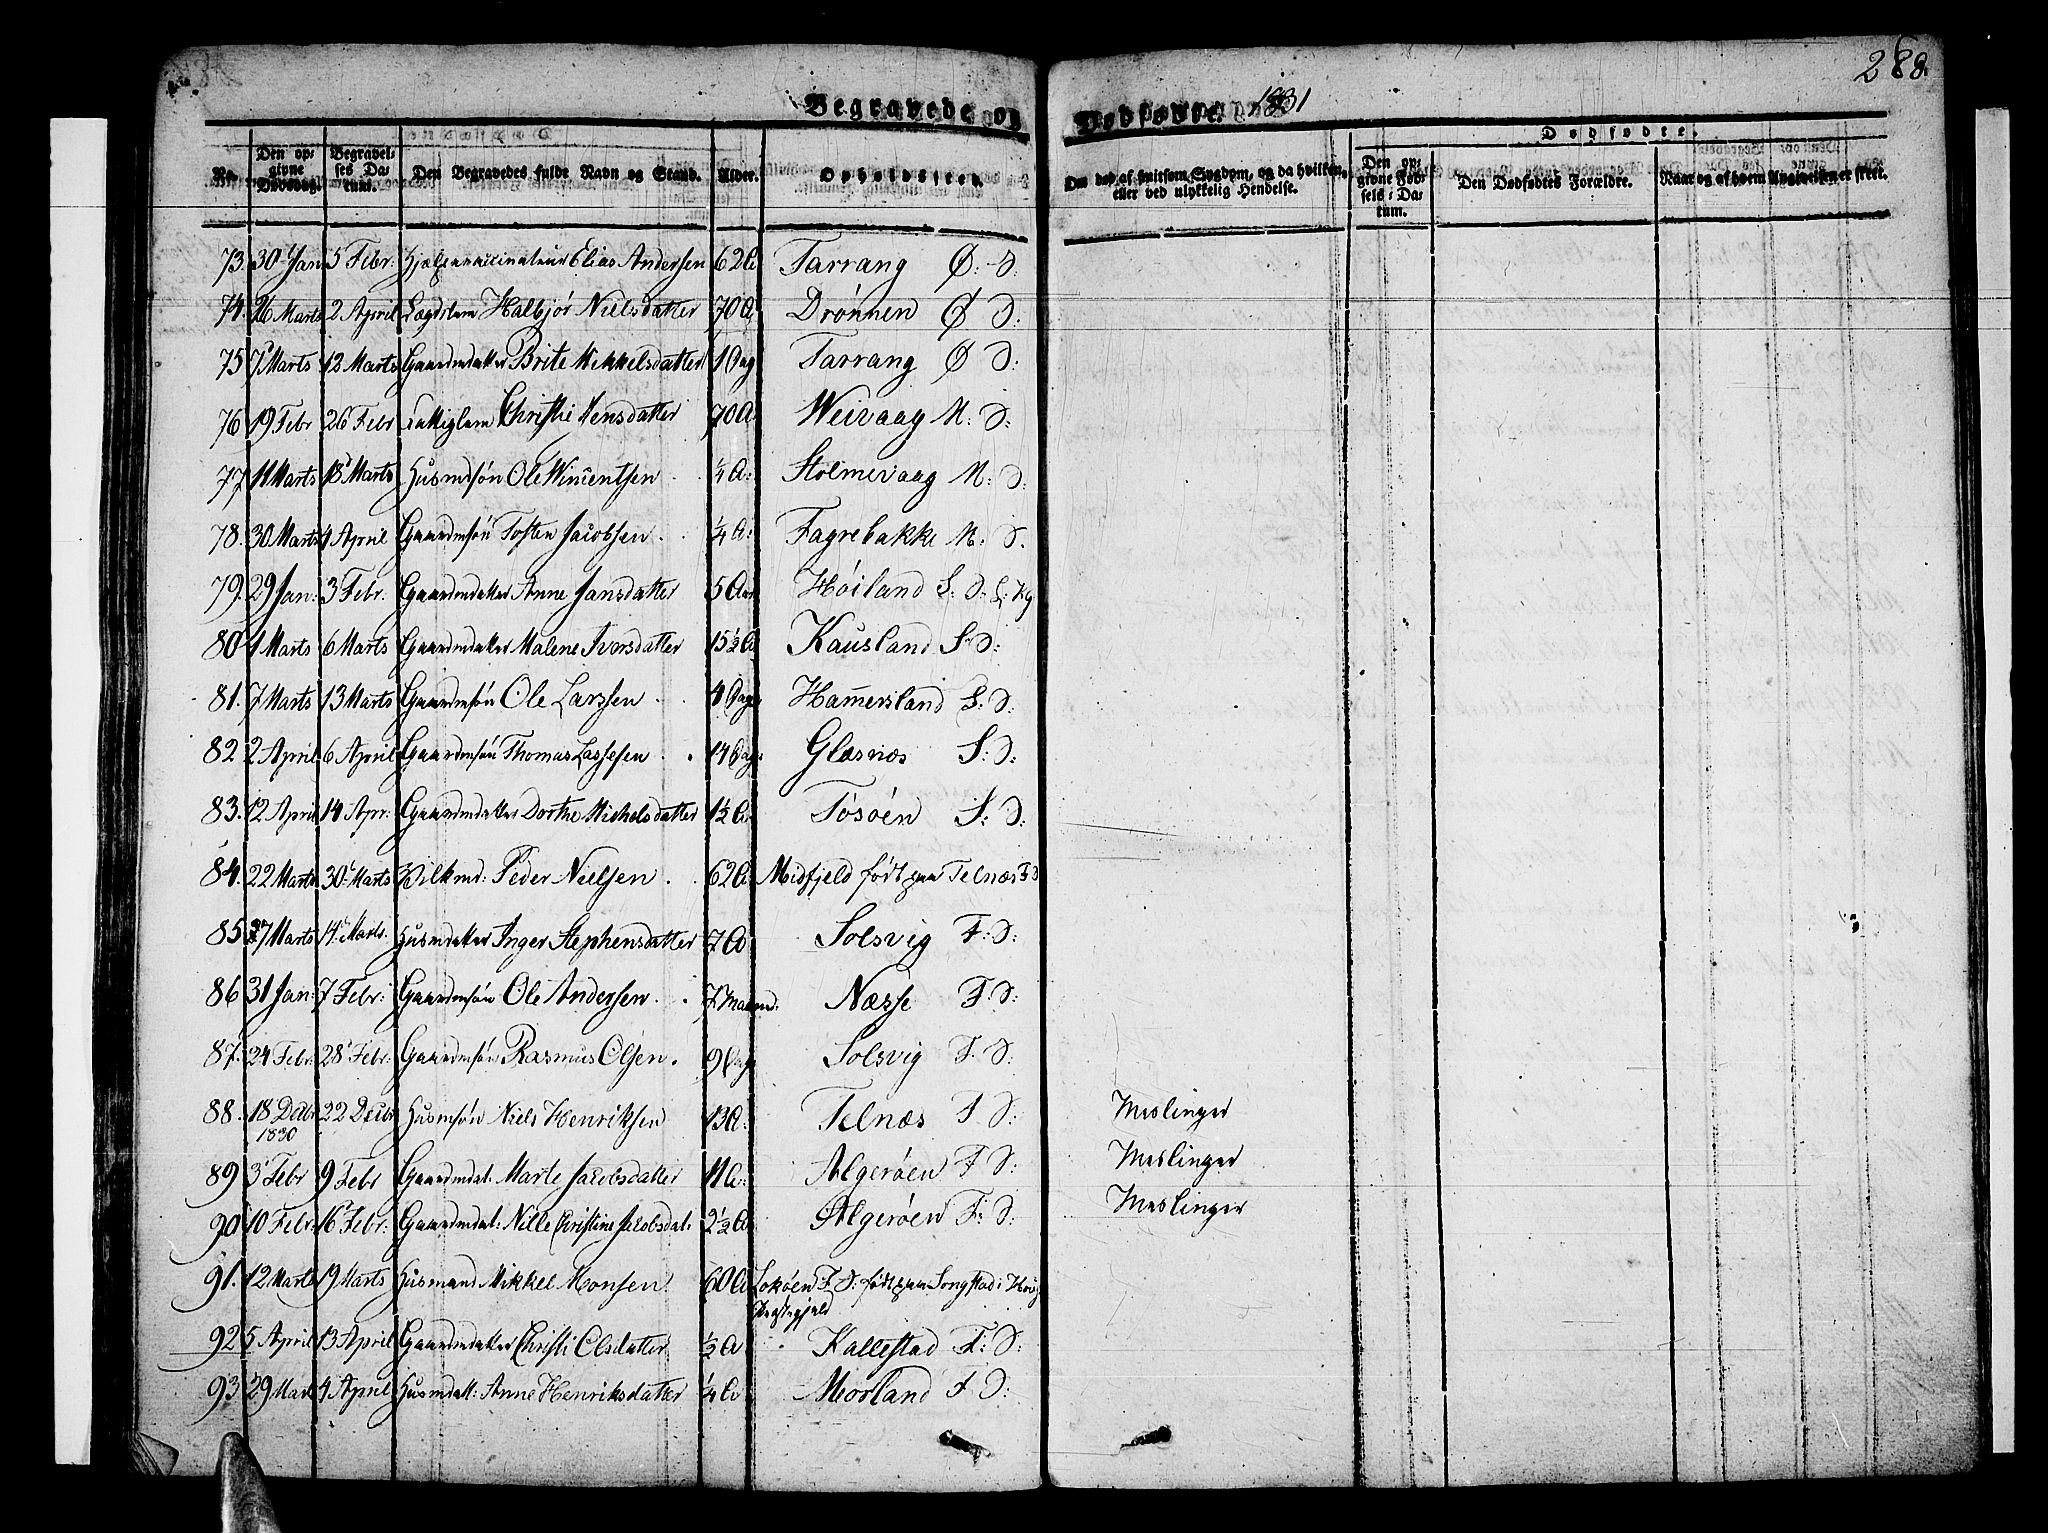 288
Begravede og Dødfødte. 1831
Dødfødte.
No. Den opgivne Dødsdag. Begravelses Datum. Den Begravedes fulde Navn og Stand. Alder. Opholdssted. Om død af smitsom Sygdom, og da hvilken, eller ved ulykkelig Hendelse. Den opgivne Fødsels Datum. Den Dødfødtes Forældre. Naar og af hvem Angivelsen er skeet.
73. 30 Jan 5 Febr: Hjelpevaccinateur Elias Andersen 62 A Tarrang Ø: D:
74. 26 Marts 2 April Lægdslem Halbjør Nielsdatter 70 A Drønnen Ø D:
75 7 Marts 13 Marts Gaardmdatter Brite Mikkelsdatter 1 Dag Tarrang Ø D:
76 19 Febr 26 Febr Fattiglem Christi Monsdatter 70 A Weivaag M: D:
77 11 Marts 18 Marts Husmdsøn Ole Wincentsen ¼ A: Stolmevaag M: D:
78. 30 Marts 4 April Gaardmsøn Tosten Jacobsen ¼ A: Fagrebakke M: D.
79. 29 Jan: 3 Febr. Gaardmdatter Anne Jansdatter 5 Aar Høiland S: D:
80 1 Marts 6 Marts Gaardmdatter Malene Iversdatter 15½ A Kausland S: D:
81. 7 Marts 13 Marts Gaardmsøn Ole Larssen 4 Dage Hamersland S: D:
82 2 April 6 April Gaardmsøn Thomas Lassesen 14 Dage Glesnæs S: D:
83. 12 April 14 Apr: Gaardmdatter Dorthe Michelsdatter 1½ A Tøsøen S: D:
84. 22 Marts 30 Marts Vilkmd: Peder Nielsen 62 A Midfjeld født paa Telnæs F D
85 7 Marts 14 Marts. Husmdatter Inger Stephensdatter 7 A Solsvig F: D:
86 31 Jan: 7 Febr: Gaardmsøn Ole Andersen 7 Maaned: Næsse F. D:
87. 24 Febr: 28 Febr. Gaardmsøn Rasmus Olsen 9 Dage Solsvig F. D:
88. 18 Decbr 1830 22 Decbr Husmsøn Niels Henriksen 13 A: Telnæs F. D: Meslinger
89 3 Febr 9 Febr Gaardmdat. Marte Jacobsdatter 11 A: Algerøen F D: Meslinger
90 10 Febr: 16 Febr. Gaardmdat: Nille Christine Jacobsdat: 2½ A Algerøen F: D: Meslinger
91. 12 Marts 19 Marts Husmand Mikkel Monsen 60 A Lokøen F D: født paa Songstad i
Prestegjeld
92 5 April 13 April Gaardmdatter Christi Olsdatter ½ A Kallestad F: D:
93 29 Marts 4 April Husmdatt: Anne Henriksdatter ¼ A Morland F D: